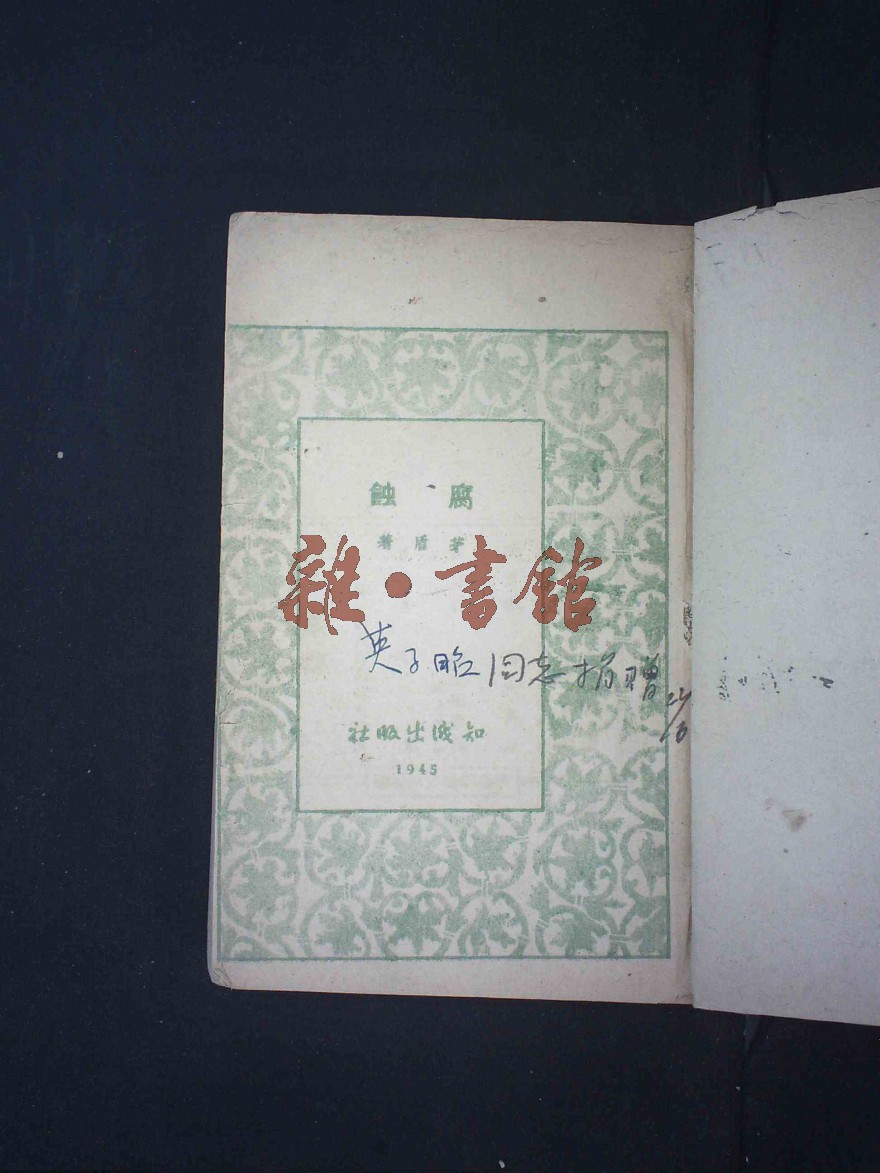 腐蝕
茅盾著
雜·書館
英子昭同志捐贈
知識出版社
1945